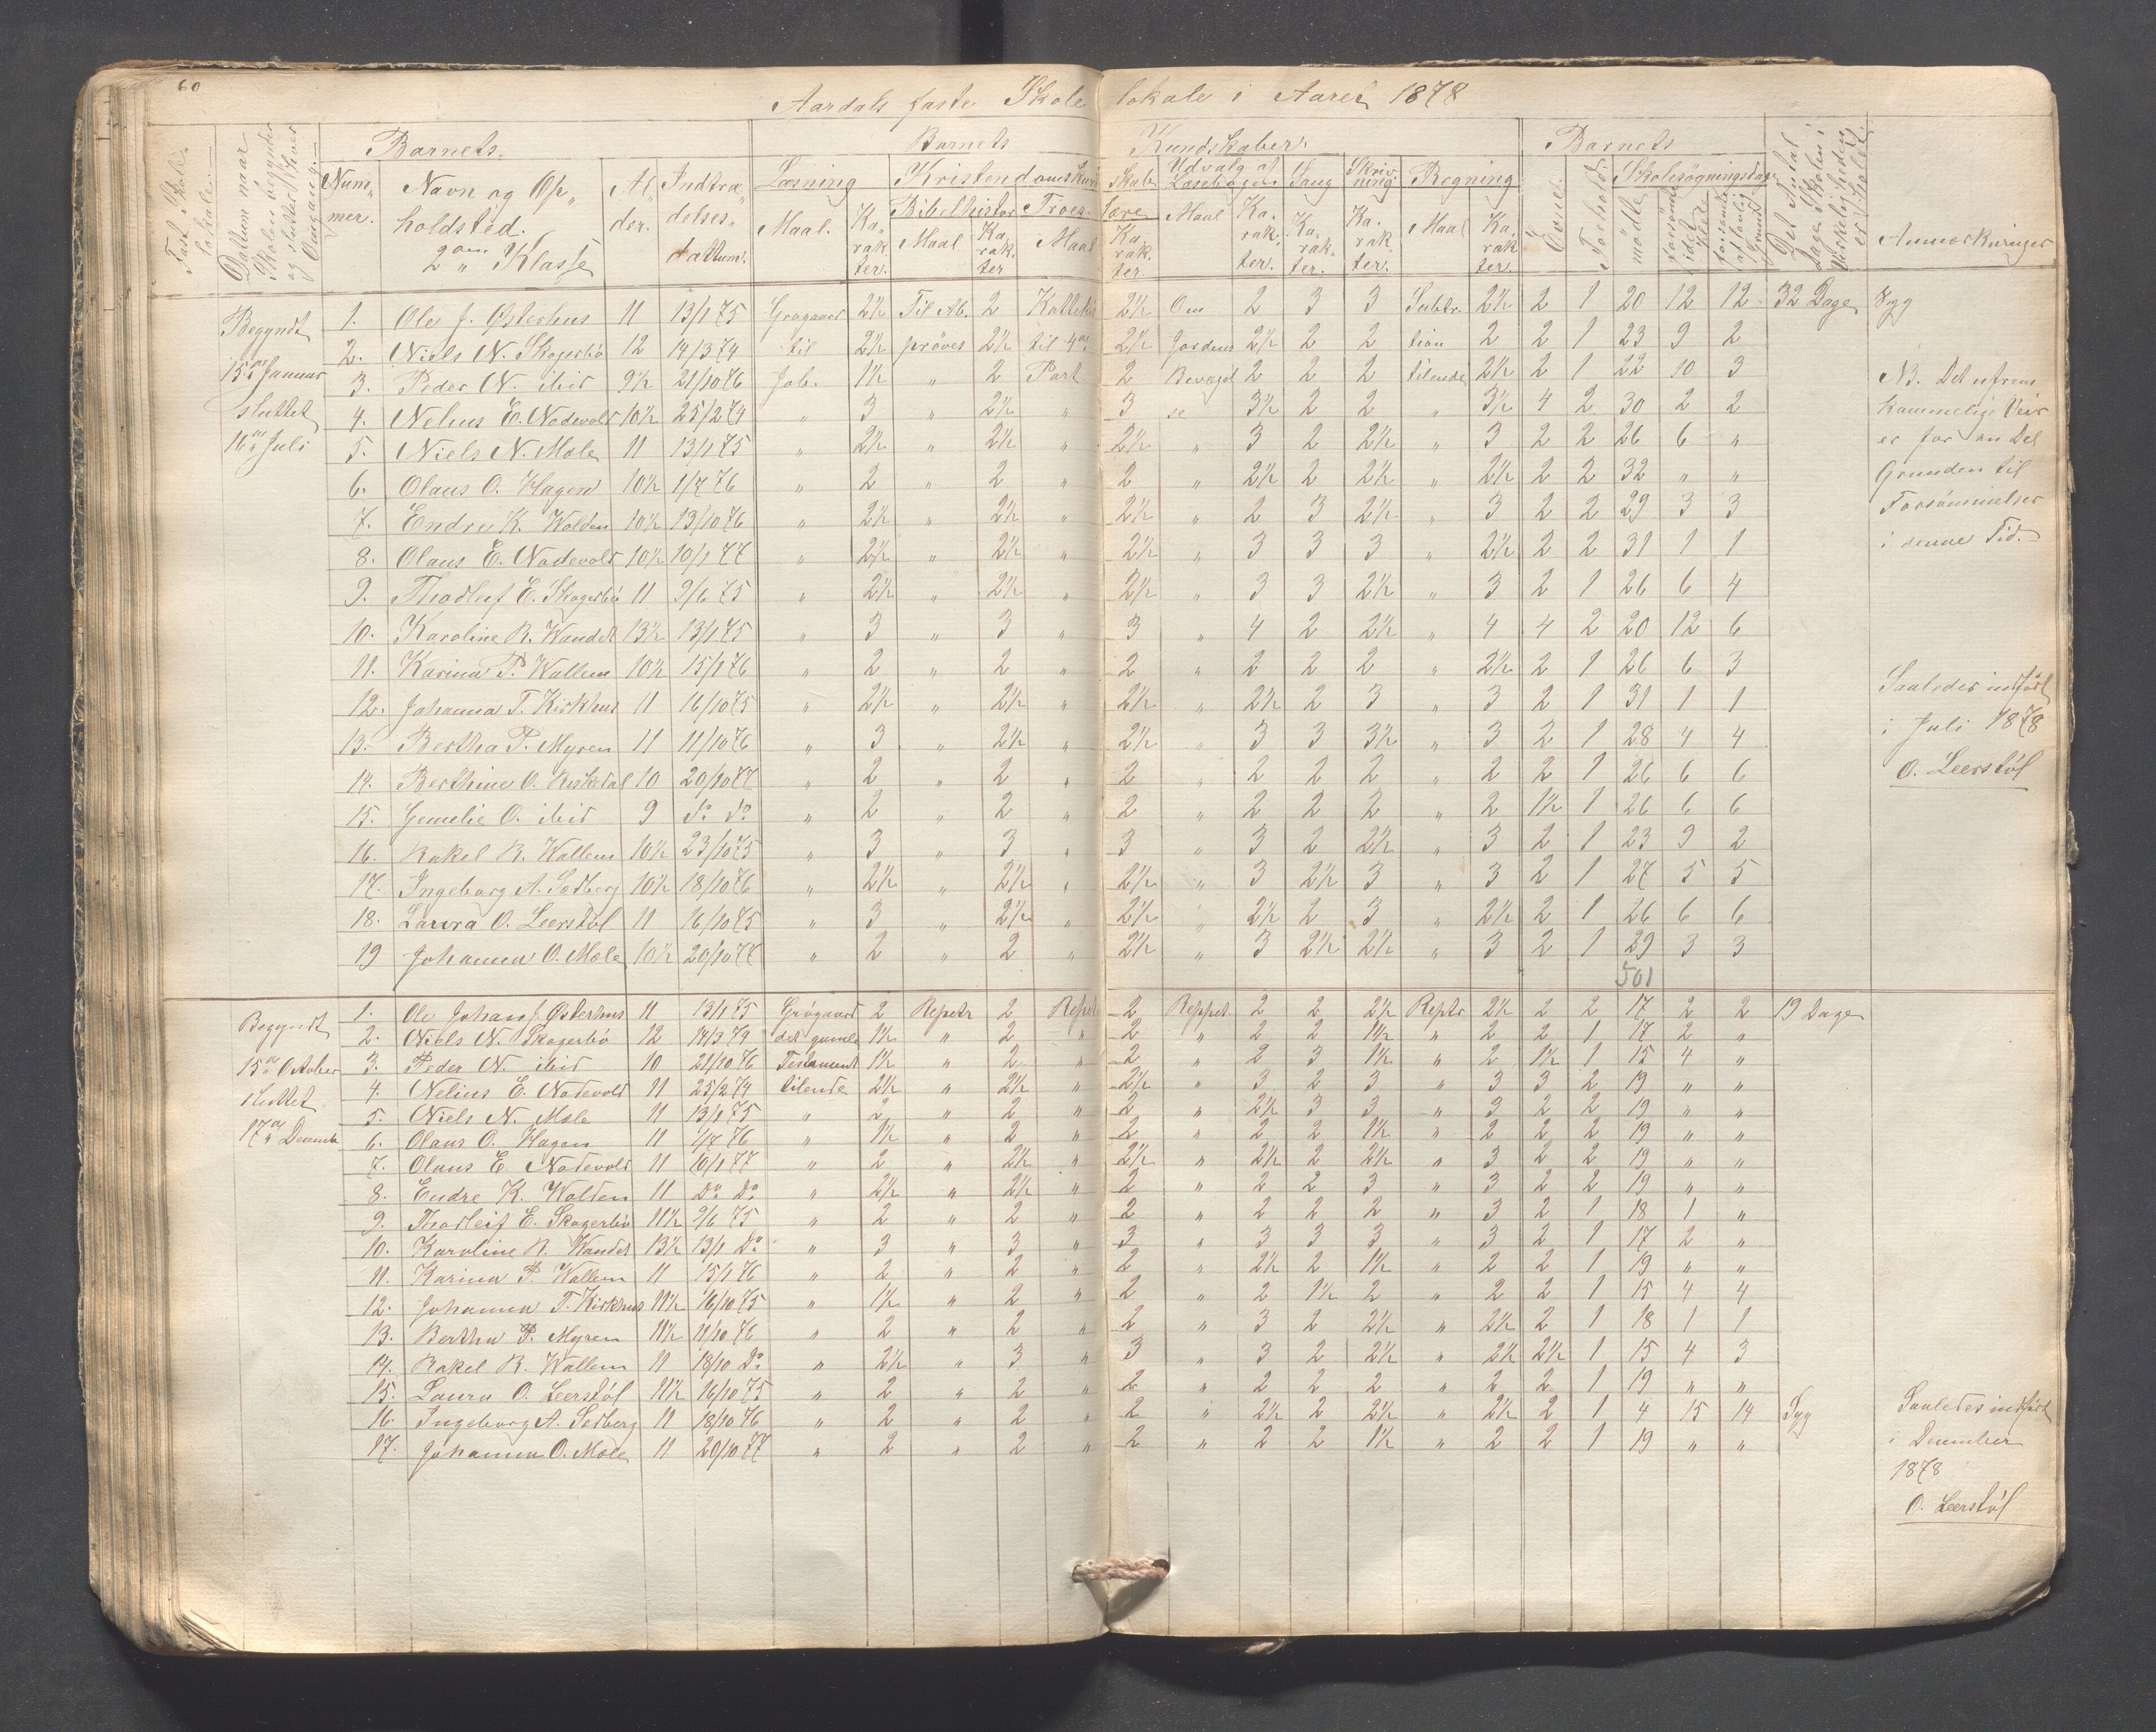 60
Aardals faste Skolelokale i Aaret 1878
Fast Skolelokale.
Dattum naar Skolen begynder og slutter i hver Omgang.
Barnets
Nummer.
Navn og Opholdsted.
2den Klasse
Alder.
Indtrædelsesdattum.
Barnets Kundskaber
Læsning
Maal. Karakter.
Kristendomskundskab
Bibelhistorie Maal Karakter
Troeslære Maal Karakter
Udvalg af Læsebogen Maal Karakter.
Sang Karakter.
Skrivning Karakter.
Regning Maal Karakter.
Barnets
Evner.
Forhold
Skolesøgningsdage
mødte
forsømte i det Hele
forsømte af lovlig Grund
Det Antal Dage Skolen i Virkeligheden er holdt
Anmærkninger
Begyndt 15de Januar sluttet 16de Juli
1. Ole J. Østerhus 11 13/1 75 Grøgaard 2½ Til Ab. 2 2½ Om 2 3 3 Subtr. 2½ 2 1 20 12 12 32 Dage Syg
2. Niels N. Skogerbø 12 14/3 74 til 2½ prøves 2½ til 4de 2½ Jordens 2½ 2 2 tion 2 2 1 23 9 2
3. Peder N. ibid 9½ 21/10 76 Job. 1½ " 2 Part 2 Bevægel 2 2 2 tilende 2½ 2 1 22 10 3
4. Nelius E. Nodevold 10½ 25/2 74 " 3 " 2½ " 3 se 3½ 2 2 " 3½ 4 2 30 2 2
5. Niels N. Mæle 11 13/1 75 " 2½ " 2½ " 2½ " 3 2 2½ " 3 2 2 26 6 "
6. Olaus O. Hagen 10½ 1/7 76 " 2 " 2 " 2 " 2½ 2 2½ " 2½ 2 2 32 " "
7. Endre K. Wolden 10½ 13/10 76 " 2½ " 2½ " 2½ " 2 3 2½ " 3 2 2 29 3 3
8. Olaus E. Nodevold 10½ 10/1 77 " 2½ " 2½ " 2½ " 3 3 3 " 2½ 2 2 31 1 1
9. Thorleif E. Skogerbø 11 9/6 75 " 2½ " 2½ " 2½ " 3 3 2½ " 3 2 1 26 6 4
10. Karoline R. Wander 13½ 13/1 75 " 3 " 3 " 3 " 4 2 2½ " 4 4 2 20 12 6
11. Karina P. Wallem 10½ 15/1 76 " 2 " 2 " 2 " 2 2 2 " 2½ 2 1 26 6 3
12. Johanna T. Kirkhus 11 16/10 75 " 2½ " 2½ " 2½ " 2½ 2 3 " 3 2 1 31 1 1
13. Bertha P. Myren 11 11/10 76 " 3 " 2½ " 2½ " 3 3 3½ " 3 2 1 28 4 4
14. Berthine O. Riskedal 10 20/10 77 " 2 " 2 " 2 " 2 2 2 " 2 2 1 26 6 6
15. Gemelie O. ibid 9 do do " 2 " 2 " 2 " 2 2 2 " 2 1½ 1 26 6 6
16. Rakel R. Wallem 10½ 23/10 75 " 3 " 3 " 3 " 3 2 2½ " 3 2 1 23 9 2
17. Ingeborg A. Sedberg 10½ 18/10 76 " 2½ " 2½ " 2½ " 3 2½ 3 " 3 2 1 27 5 5
18. Laura O. Leerstøl 11 16/10 75 " 3 " 2½ " 2½ " 2½ 2 3 " 2½ 2 1 26 6 6
19 Johanna O. Mæle 10½ 20/10 77 " 2 " 2 " 2½ " 3 2½ 2½ " 3 2 1 29 3 3
501
NB. Det ufrem
kommelige Veir
er for en Del
Grunden til
Forsømmelser
i denne Tid.
Saaledes indført
i Juli 1878
O. Leerstøl
Begyndt 15de October sluttet 17de Decembr
1. Ole Johan J. Østerhus 11 13/1 75 Grøgaard 2 Repetr 2 Repet 2 Reppet 2 2 2½ Reptr 2½ 2 2 17 2 2 19 Dage
2. Niels N. Skogerbø 12 14/3 79 det gamle 1½ " 2 " 2 " 2 2 1½ " 2 2 1 17 2 "
3. Peder N. ibid 10 21/10 76 Testament 1½ " 2 " 2 " 2 3 1½ " 2 1½ 1 15 4 "
4. Nelius E. Nodevold 11 25/2 74 tilende 2½ " 2½ " 2½ " 3 2 3 " 3 3 2 19 " "
5. Niels N. Mæle 11 13/1 75 " 2 " 2 " 2 " 2½ 3 3 " 3 2 2 19 " "
6. Olaus O. Hagen 11 1/7 76 " 1½ " 2 " 2 " 2 2 1½ " 2 2 2 19 " "
7. Olaus E. Nodevold 11 10/1 77 " 2 " 2½ " 2½ " 2½ 2 2½ " 3 2 2 19 " "
8. Endre K. Wolden 11 Do Do " 2½ " 2½ " 2 " 2 2 3 " 3 2 2 19 " "
9. Thorleif E. Skogerbø 11½ 9/6 75 " 2 " 2 " 2 " 2 2 2 " 3 2 1 18 1 "
10. Karoline R. Wander 13½ 13/1 Do " 3 " 3 " 3 " 3 3 3 " 3 2 1 17 2 "
11. Karina P. Wallem 11 15/1 76 " 2 " 2 " 2 " 2½ 2 1½ " 2 2 1 19 " "
12. Johanna T. Kirkhus 11½ 16/10 75 " 1½ " 2 " 2 " 2 1½ 2 " 2 2 1 15 4 4
13. Bertha P. Myren 11½ 11/10 76 " 2 " 2 " 2 " 3 2 2½ " 2½ 2 1 18 1 1
14. Rakel R. Wallem 11 18/10 Do " 2½ " 3 " 3 " 3 2 2½ " 2½ 2½ 1 15 4 3
15. Laura O. Leerstøl 11½ 16/10 75 " 2 " 2 " 2 " 2 2 2 " 2 2 1 19 " "
16. Ingeborg A. Sedberg 11 18/10 76 " 2 " 2 " 2 " 2½ 2 2½ " 2½ 2 1 4 15 14 Syg
17. Johanna O. Mæle 11 20/10 77 " 2 " 2 " 2 " 2 2 1½ " 2 2 1 19 " "
Saaledes indført
i December
1878
O. Leerstøl